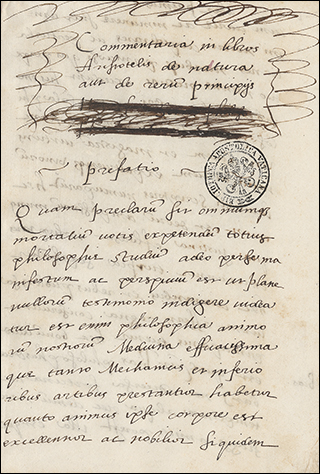 Commentaria in libros
Aristotelis de natura
aut de rerum principijs
BIBLIOTHECA APOSTOLICA VATICANA
prefatio
Quam preclarum sit omniumq
mortalium votis expetendum totius
philosophiae studium adeo per se ma
nifestum ac perspicuum est ut plane
nullorum testimonio indigere videa
tur est enim philosophia animo
rum nostrorum Medicina efficacissima
que tanto Mechanicis et inferio
ribus artibus prestantior habetur
quanto animus ipse corpore est
excellentior ac nobilior siquidem